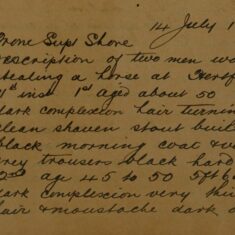 14 July 1
From Supt Shore
description of two men wa
stealing a horse at Hertf
1st inst 1st aged about 50
dark complexion hair turnin
clean shaven stout buil
black morning coat & v
grey trousers black hard
2nd age 45 to 50 5ft 6
dark complexion very thi
hair & moustache dark c